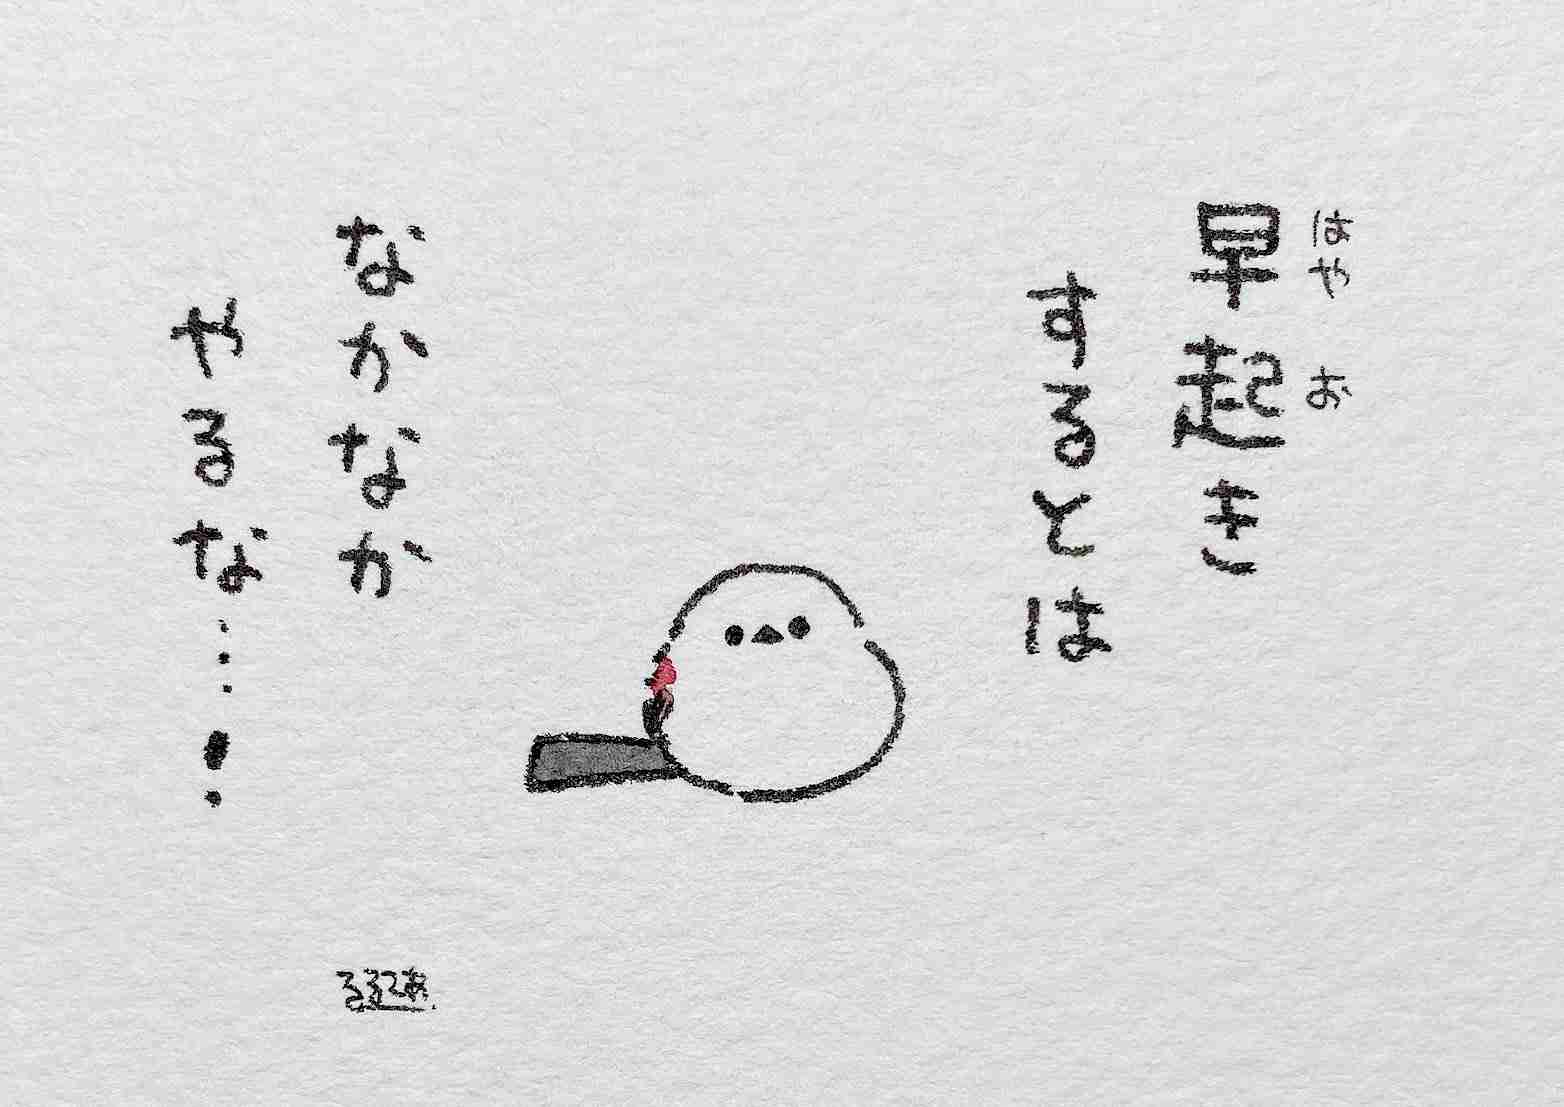 早起き
はや お
するとは
なかなか
やるな…!